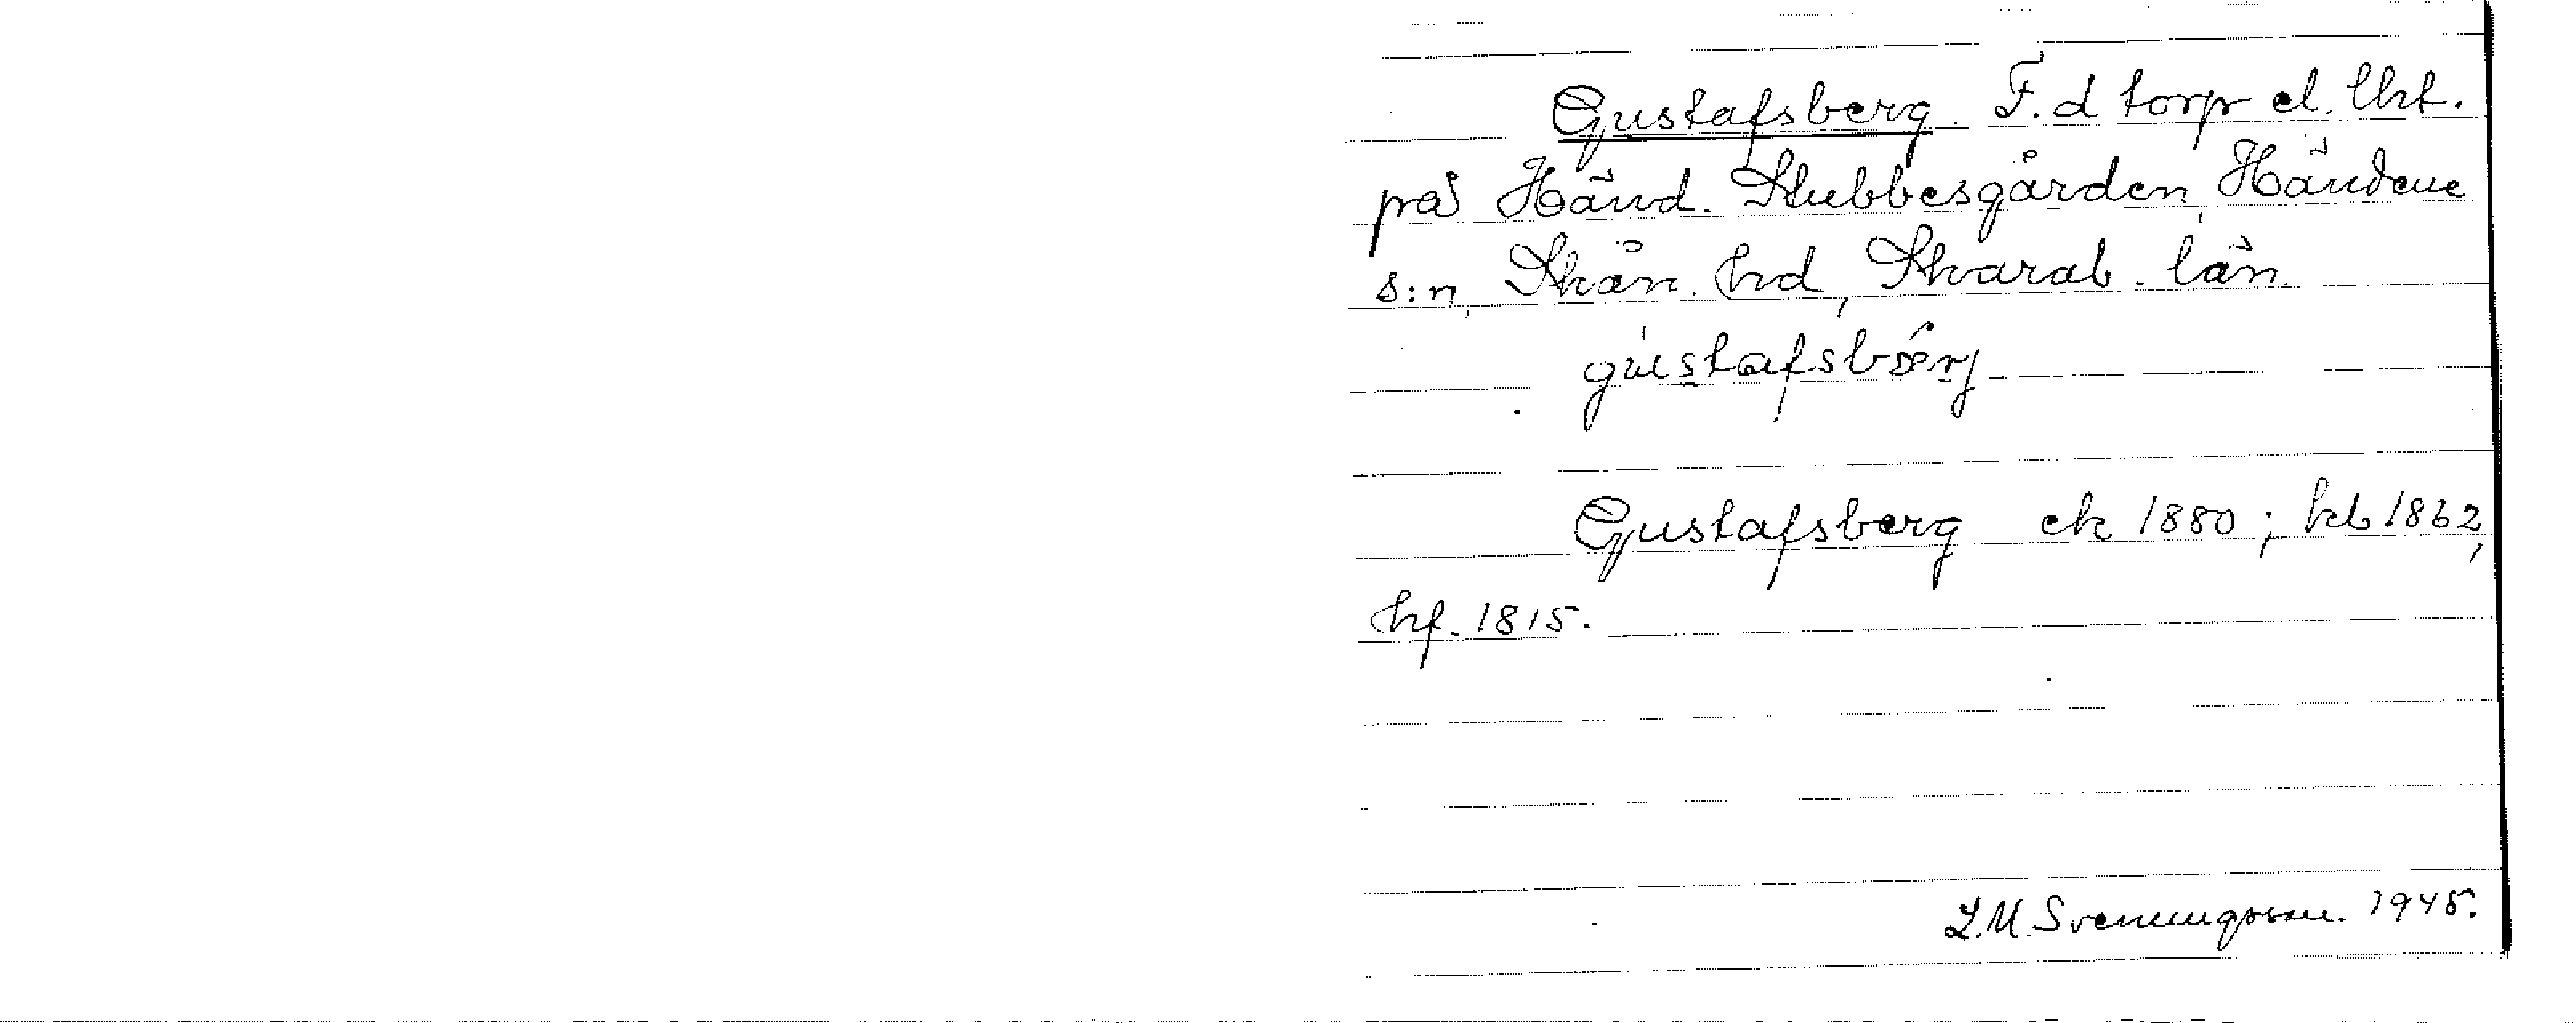 Gustafsberg. F.d torp el. lht.
på Händ. Stubbesgården, Händene
s:n, Skån. hd, Skarab. län.
gustafsbærj
Gustafsberg ek 1880; kb 1862,
hf. 1815.
L.M. Svenungsson. 1945.